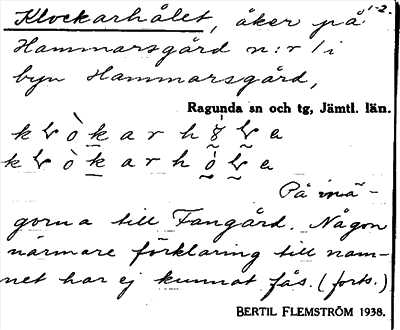 Klockarhålet, åker på 1-2.
Hammarsgård n:r 1 i
byn Hammarsgård,
Ragunda sn och tg, Jämtl. län.
På inä-
gorna till Fangård. Någon
närmare förklaring till nam-
net har ej kunnat fås. (forts.)
BERTIL FLEMSTRÖM 1938.